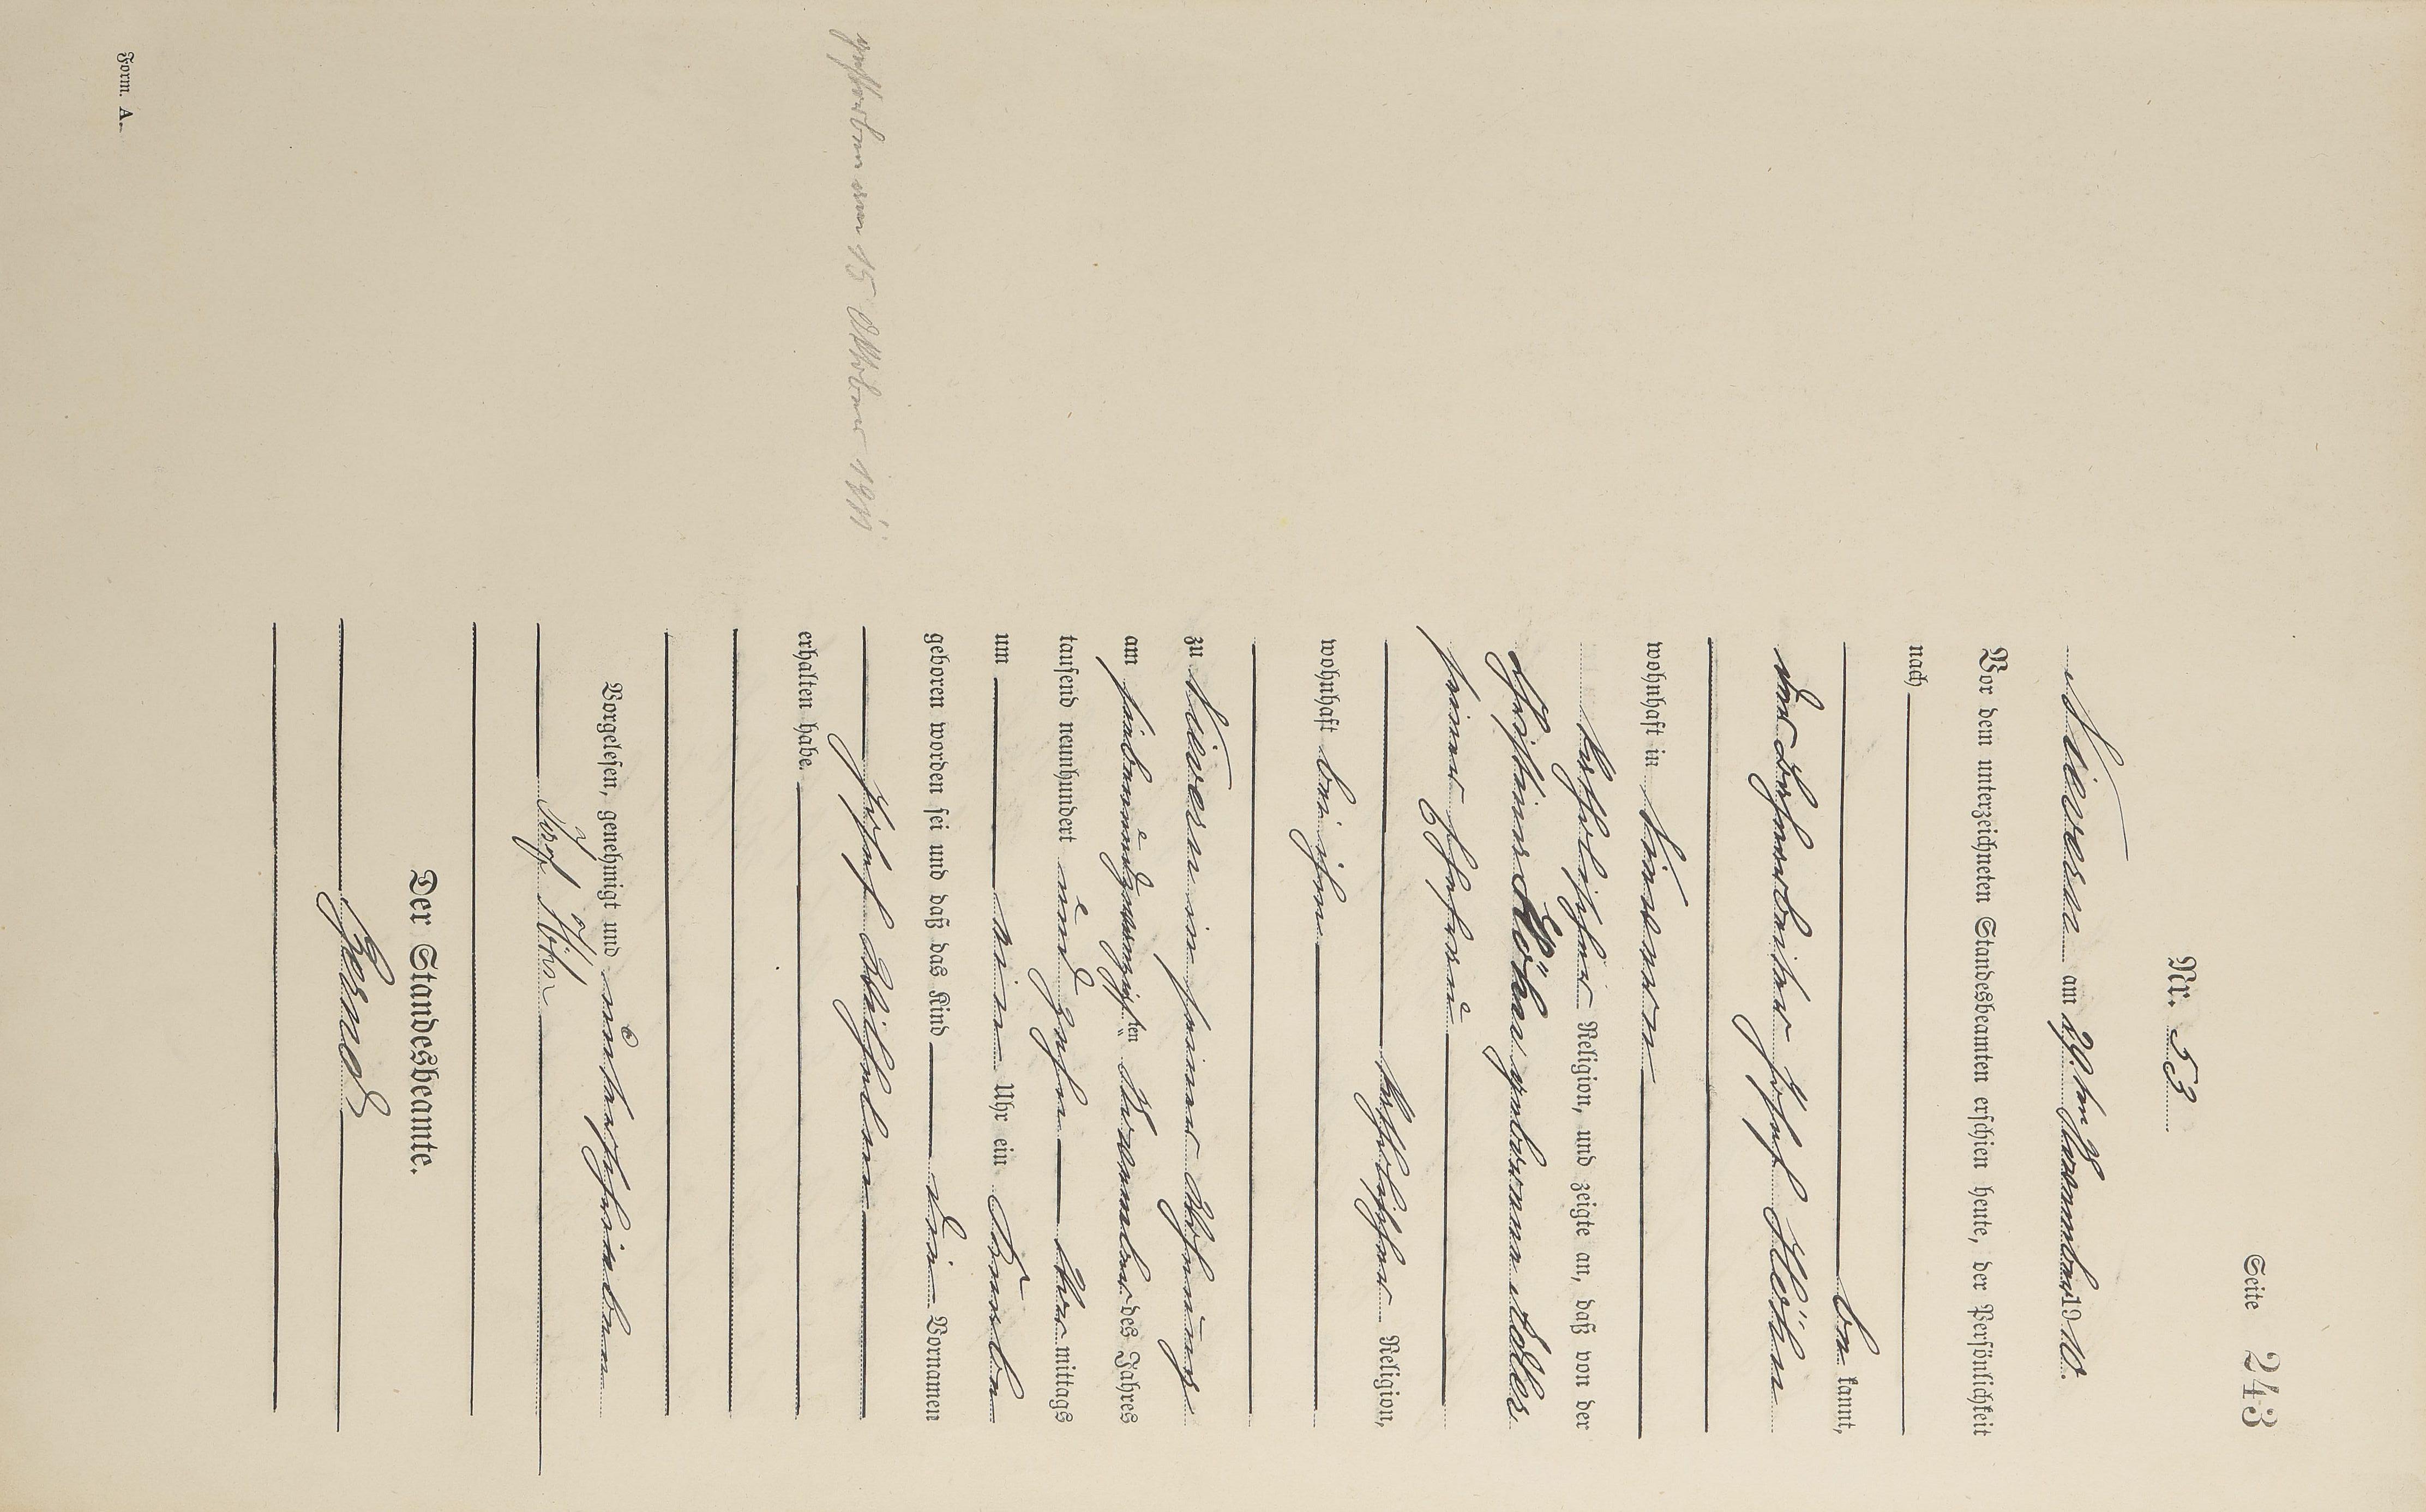 Seite 243
Nr. 53
Nievern am 29. ten November 1910.
Vor dem unterzeichneten Standesbeamten erschien heute, der Persönlichkeit
nach
be kannt,
der Bahnarbeiter Josef Stöhr
wohnhaft in Nievern
katholischer Religion, und zeigte an, daß von der
Christina Stöhr geborenen
seiner Ehefrau
katholischer Religion,
wohnhaft bei ihm
zu Nievern in seiner Wohnung
am siebenundzwanzigsten November des Jahres
tausend neunhundert und zehn Vor mittags
um neun Uhr ein Knabe
geboren worden sei und daß das Kind die Vornamen
Josef Wilhelm
erhalten habe.
gestorben am 15 Oktober 1911
Vorgelesen, genehmigt und unterschrieben
Josef
Der Standesbeamte.
Form. A.